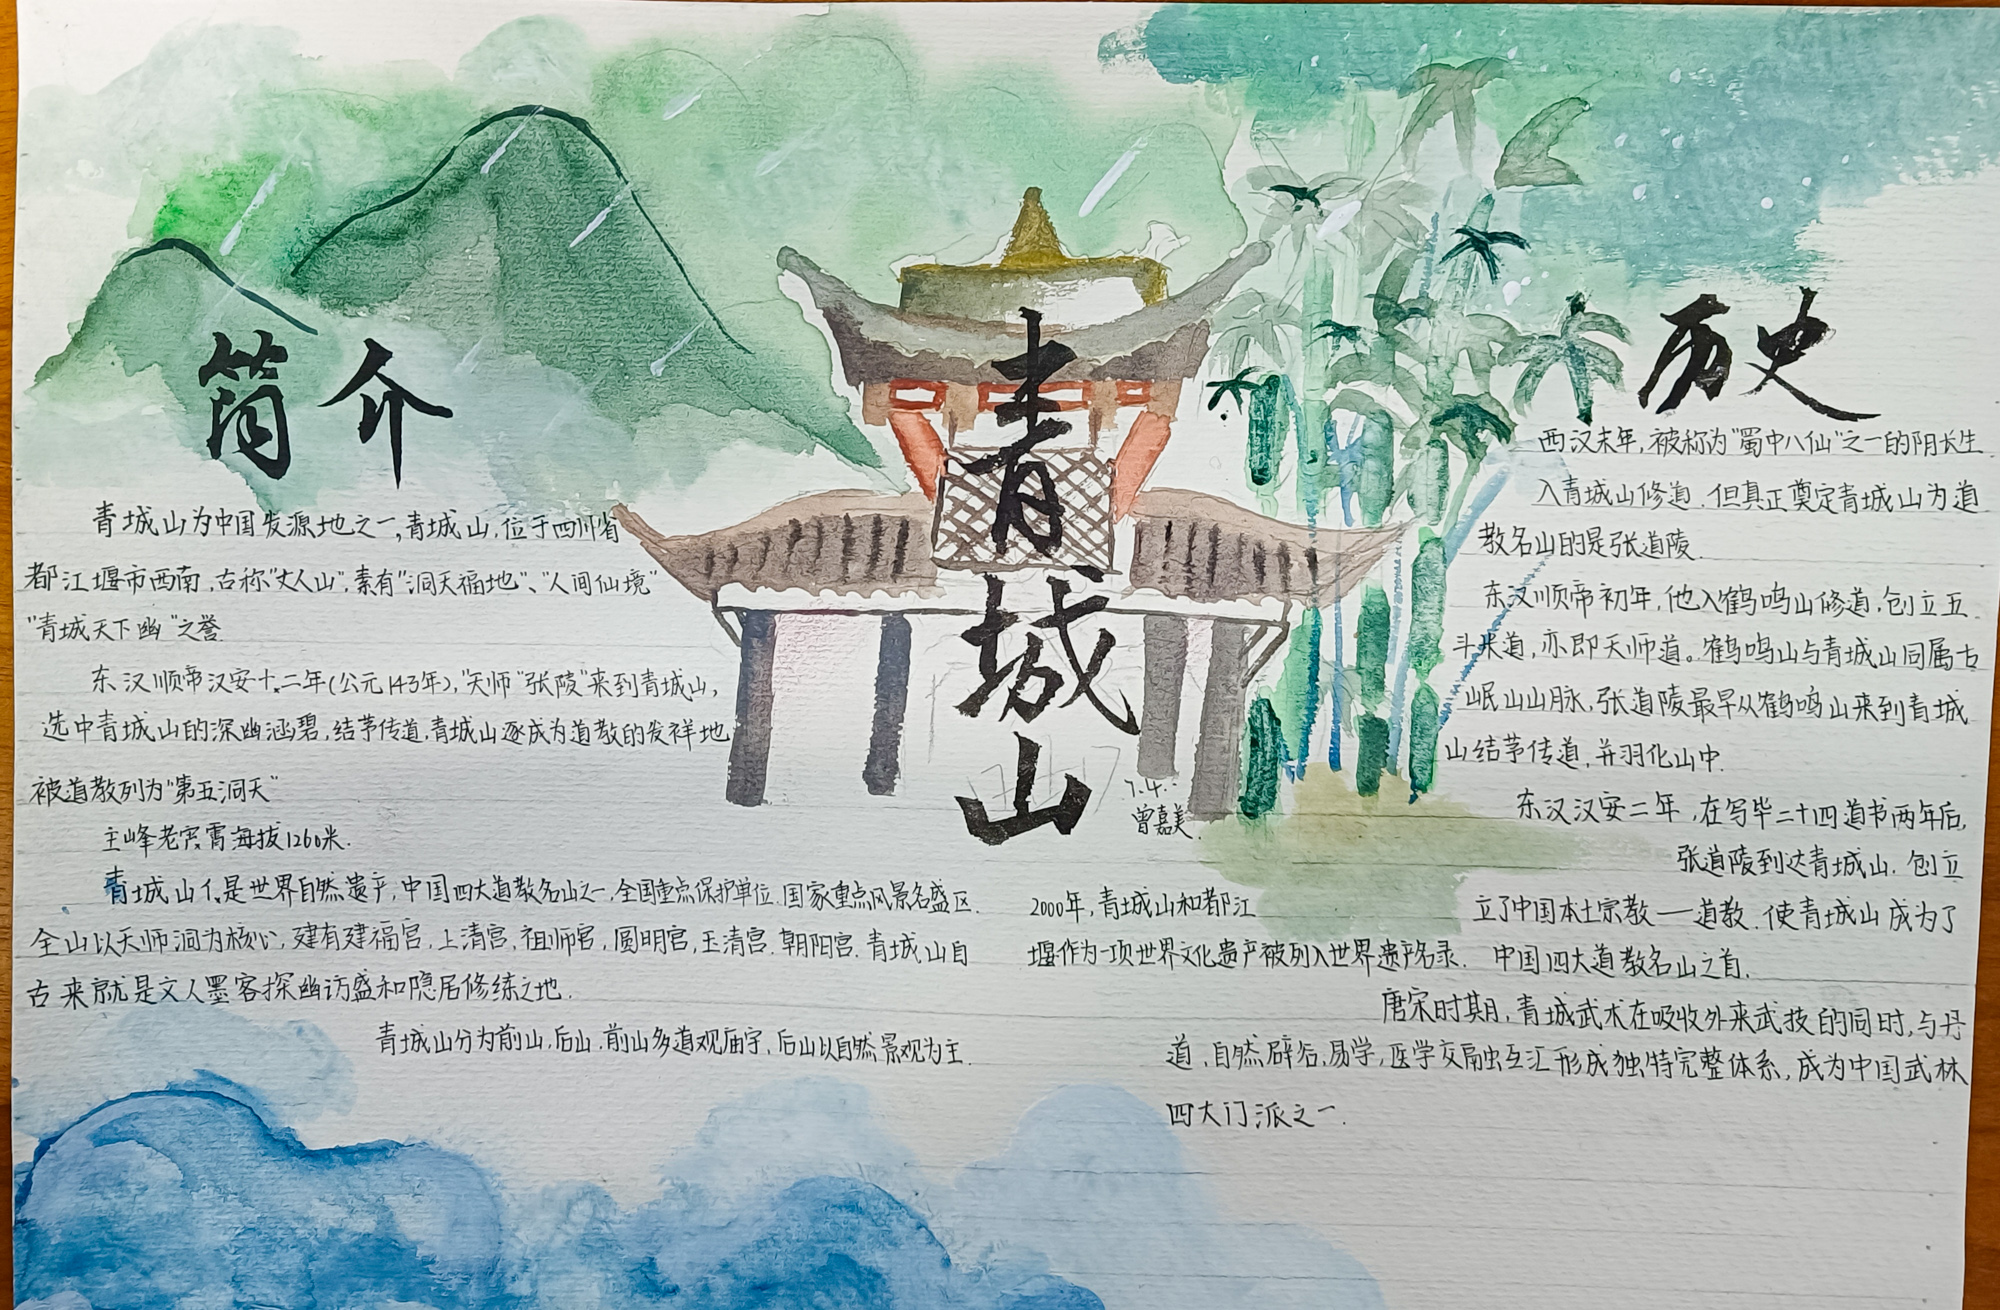 简介
青城山为中国发源地之一,青城山,位于四川省
都江堰市西南,古称"丈人山",素有"洞天福地"、"人间仙境"
"青城天下幽"之誉.
东汉顺帝汉安十二年(公元143年),"天师"张陵"来到青城山,
选中青城山的深幽涵碧,结茅传道,青城山逐成为道教的发祥地
被道教列为"第五洞天"
主峰老霄海拔1260米.
青城山是世界自然遗产,中国四大道教名山之一,全国重点保护单位.国家重点风景名盛区.
全山以天师洞为核心,建有建福宫,上清宫,祖师宫,圆明宫,玉清宫.朝阳宫.青城山自
古来就是文人墨客探幽访盛和隐居修练之地.
青城山分为前山,后山.前山多道观庙宇,后山以自然景观为主.
青
城
山
7.4.
曾嘉美
历史
西汉末年,被称为"蜀中八仙"之一的阴长生
入青城山修道.但真正奠定青城山为道
教名山的是张道陵.
东汉顺帝初年,他入鹤鸣山修道,创立五
斗米道,亦即天师道。鹤鸣山与青城山同属古
岷山山脉,张道陵最早从鹤鸣山来到青城
山结茅传道,并羽化山中.
东汉汉安二年,在写毕二十四道书两年后,
张道陵到达青城山.创立
立了中国本土宗教——道教.使青城山成为了
中国四大道教名山之首.
唐宋时期,青城武术在吸收外来武技的同时,与丹
道,自然辟谷,易学,医学交融互汇形成独特完整体系,成为中国武林
四大门派之一.
2000年,青城山和都江
堰作为一项世界文化遗产被列入世界遗产名录.